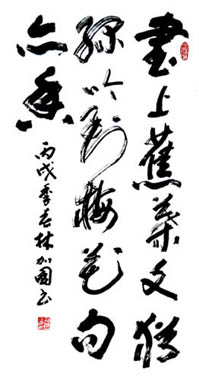 書上蕉葉文猶
綠吟到梅花句
亦香
丙戌季春林加書